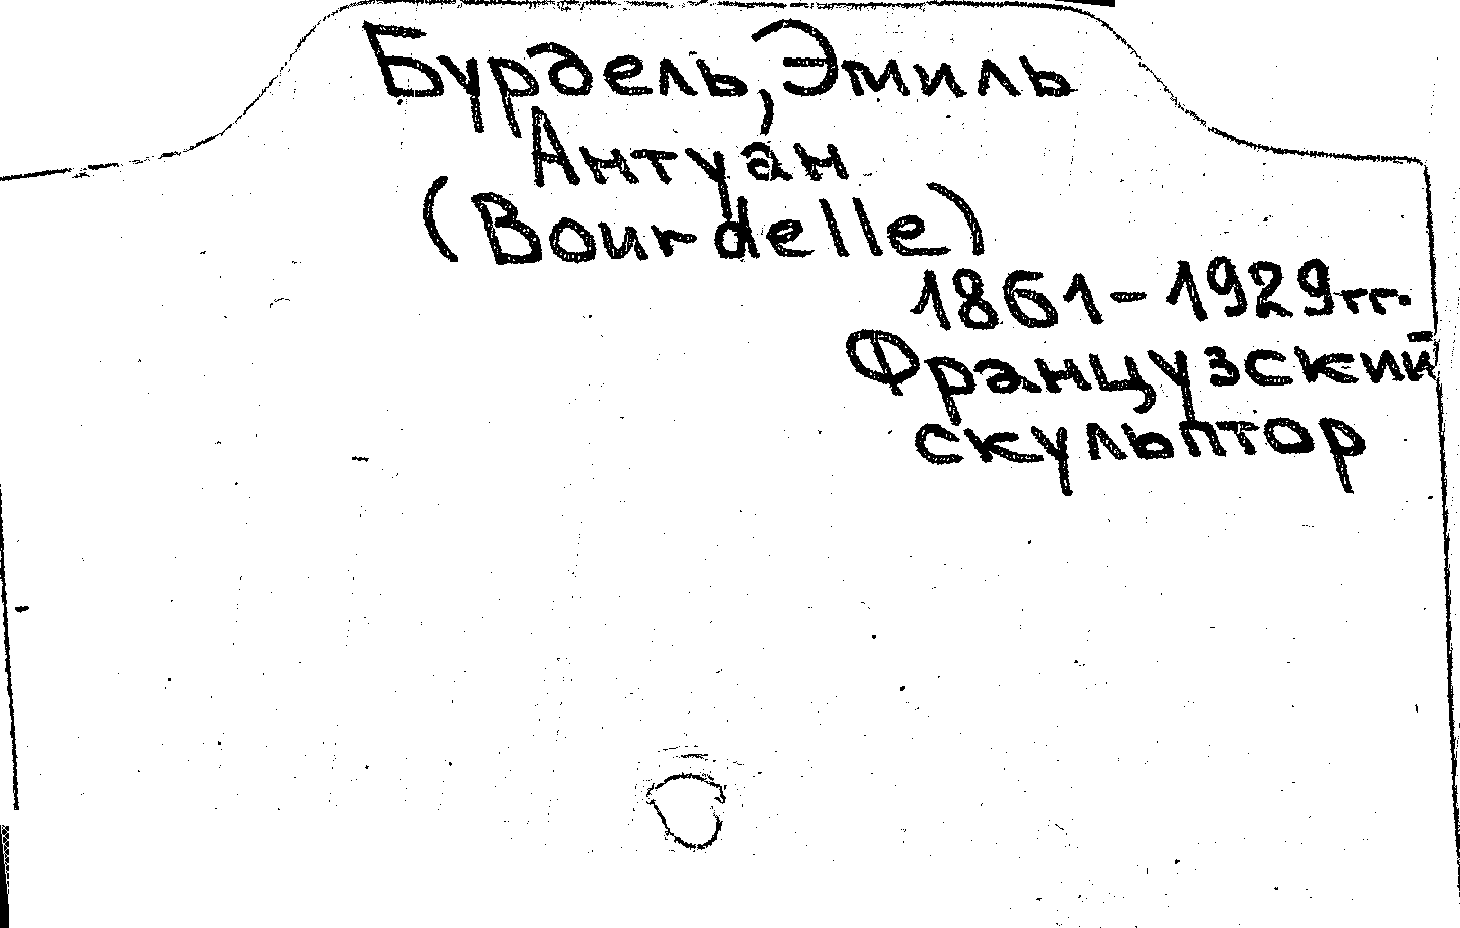 Бурдель, Эмиль
Антуан
(Bourdelle)
1861-1929гг.
Французский
скульптор